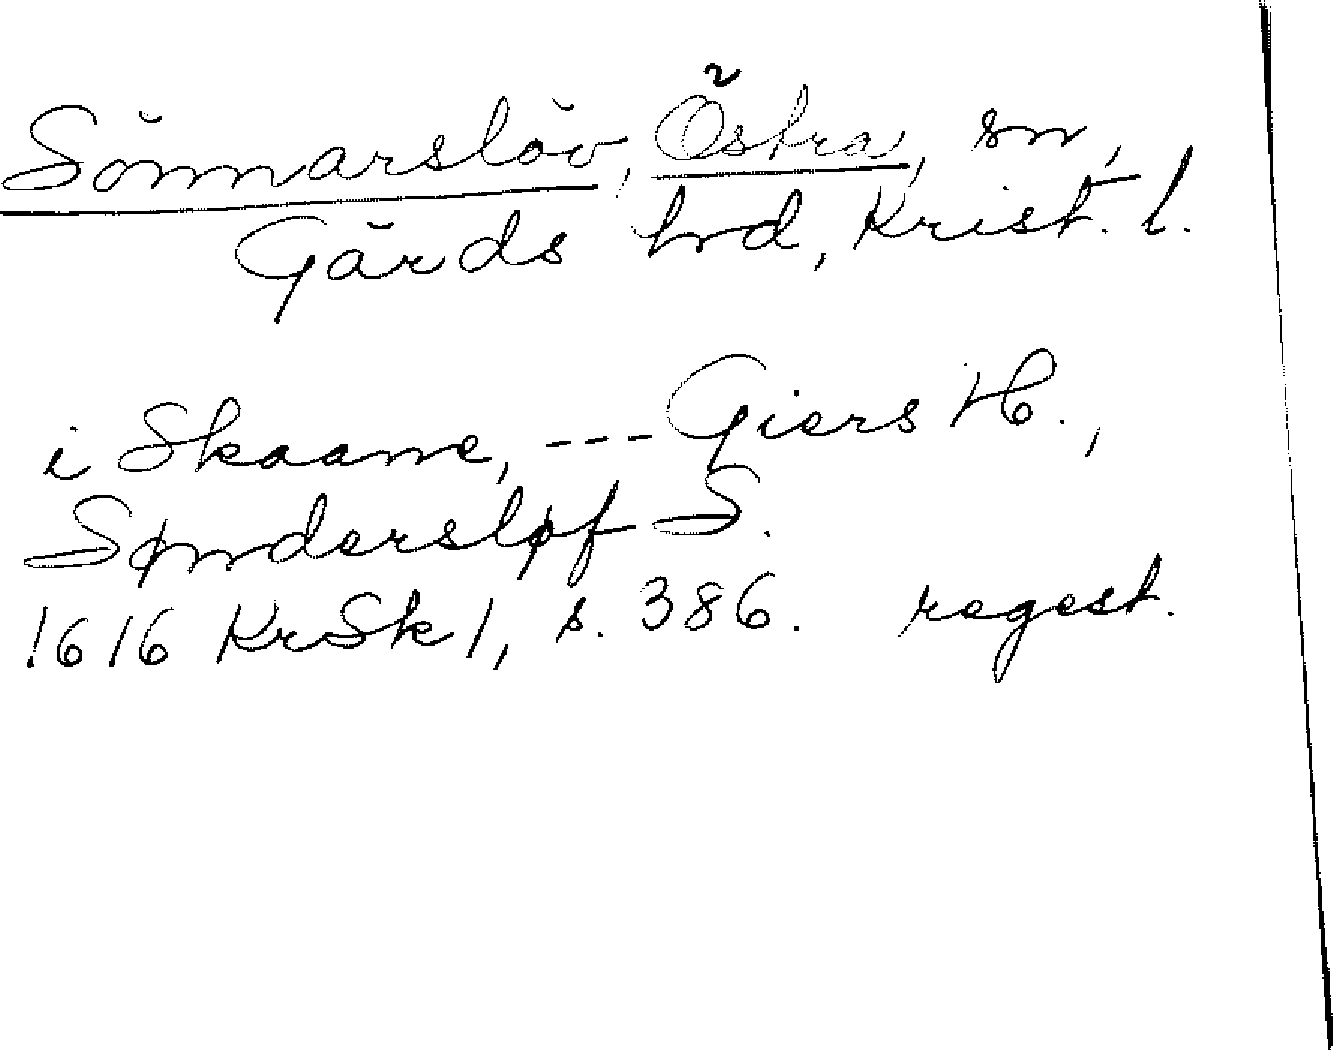 Sönnarslöv, Östra, sn,
Gärds hrd, Krist. l.
i Skaane, --- Giers H.,
Søndersløf S.
1616 KrSk 1, s. 386. regest.